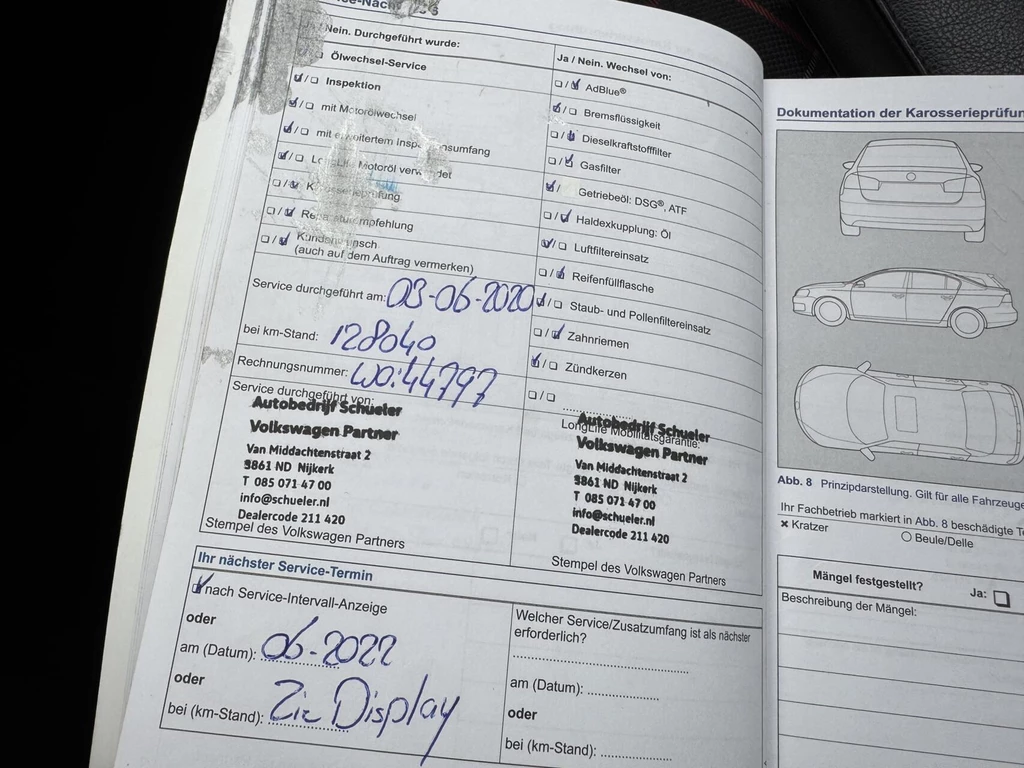 Nein. Durchgeführt wurde:
Ölwechsel-Service
☑/☐ Inspektion
☑/☐ mit Motorölwechsel
☑/☐ mit erweitertem Inspektionsumfang
☑/☐ LongLife Motoröl verwendet
☐/☑ Karosserieprüfung
☐/☑ Reparaturempfehlung
☐/☑ Kundenwunsch
(auch auf dem Auftrag vermerken)
Service durchgeführt am: 03-06-2020
bei km-Stand: 128040
Rechnungsnummer: WO:44797
Service durchgeführt von:
Autobedrijf Schueler
Volkswagen Partner
Van Middachtenstraat 2
3861 ND Nijkerk
T 085 071 47 00
info@schueler.nl
Dealercode 211 420
Stempel des Volkswagen Partners
Ja / Nein. Wechsel von:
☐/☑ AdBlue®
☑/☐ Bremsflüssigkeit
☐/☑ Dieselkraftstofffilter
☐/☑ Gasfilter
☑/ Getriebeöl: DSG®, ATF
☐/☑ Haldexkupplung: Öl
☑/☐ Luftfiltereinsatz
☐/☑ Reifenfüllflasche
☑/☐ Staub- und Pollenfiltereinsatz
☐/☑ Zahnriemen
☑/☐ Zündkerzen
☐/☐ ....................
LongLife Mobilitätsgarantie:
Autobedrijf Schueler
Volkswagen Partner
Van Middachtenstraat 2
3861 ND Nijkerk
T 085 071 47 00
info@schueler.nl
Dealercode 211 420
Stempel des Volkswagen Partners
Ihr nächster Service-Termin
☑ nach Service-Intervall-Anzeige
oder
am (Datum): 06-2022
oder
bei (km-Stand): Zie Display
Welcher Service/Zusatzumfang ist als nächster
erforderlich?
am (Datum): ....................
oder
bei (km-Stand): ....................
Dokumentation der Karosserieprüfun
Abb. 8 Prinzipdarstellung. Gilt für alle Fahrzeuge
Ihr Fachbetrieb markiert in Abb. 8 beschädigte
× Kratzer
○ Beule/Delle
Mängel festgestellt?
Ja: ☐
Beschreibung der Mängel: